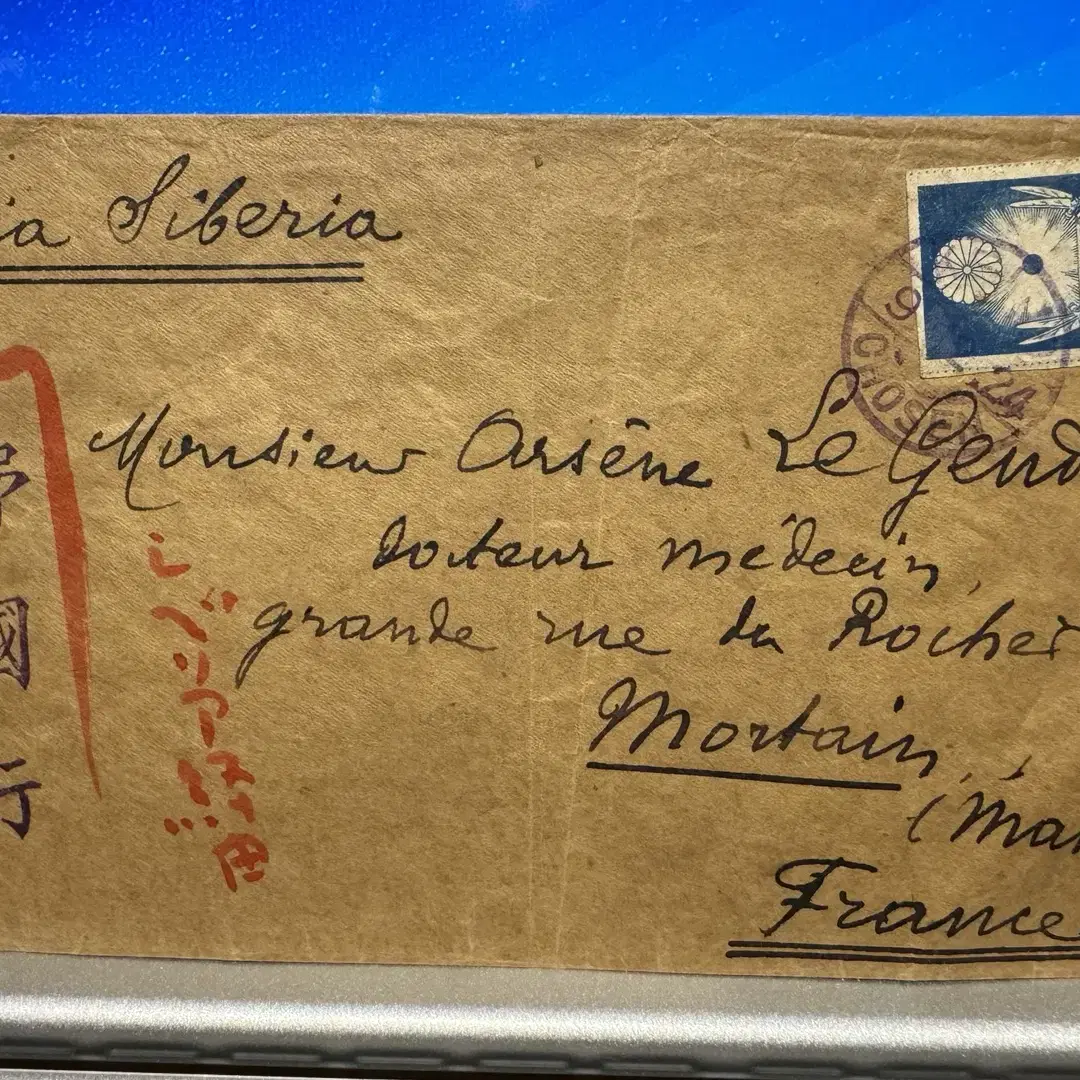 ia Siberia
Monsieur Arsène Le Gend
docteur médecin,
grande rue du Rocher
Mortain,
(Ma
France
シベリア経由
國
行